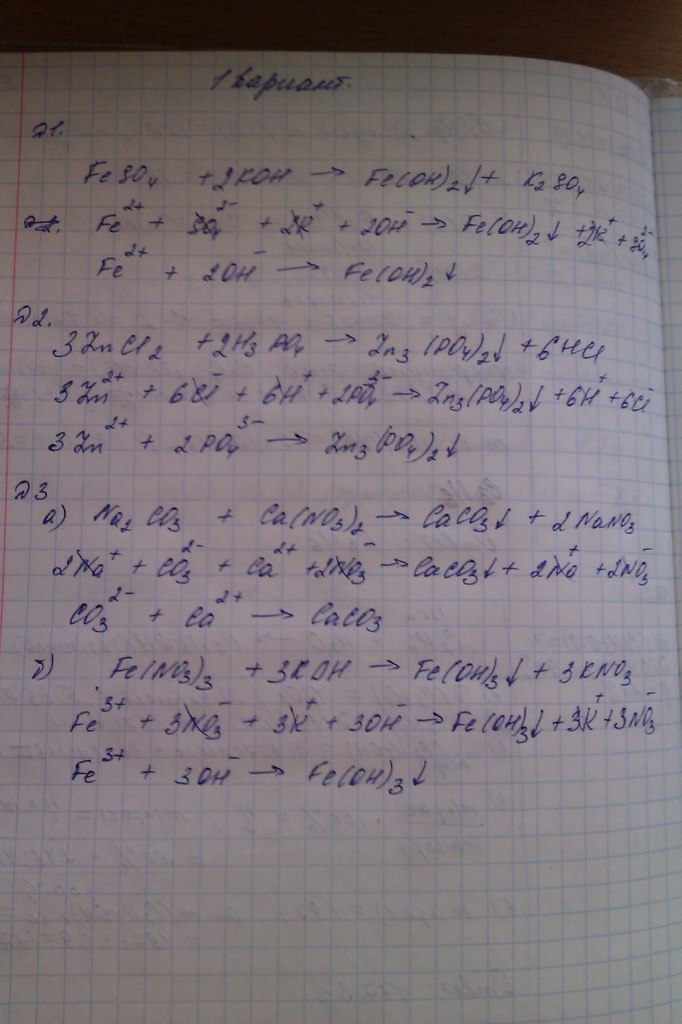 1 вариант.
д1.
FeSO₄ + 2KOH → Fe(OH)₂↓ + K₂SO₄
Fe²⁺ + SO₄²⁻ + 2K⁺ + 2OH⁻ → Fe(OH)₂↓ + 2K⁺ + SO₄²⁻
Fe²⁺ + 2OH⁻ → Fe(OH)₂↓
д2.
3ZnCl₂ + 2H₃PO₄ → Zn₃(PO₄)₂↓ + 6HCl
3Zn²⁺ + 6Cl⁻ + 6H⁺ + 2PO₄³⁻ → Zn₃(PO₄)₂↓ + 6H⁺ + 6Cl⁻
3Zn²⁺ + 2PO₄³⁻ → Zn₃(PO₄)₂↓
д3
а) Na₂CO₃ + Ca(NO₃)₂ → CaCO₃↓ + 2NaNO₃
2Na⁺ + CO₃²⁻ + Ca²⁺ + 2NO₃⁻ → CaCO₃↓ + 2Na⁺ + 2NO₃⁻
CO₃²⁻ + Ca²⁺ → CaCO₃
б) Fe(NO₃)₃ + 3KOH → Fe(OH)₃↓ + 3KNO₃
Fe³⁺ + 3NO₃⁻ + 3K⁺ + 3OH⁻ → Fe(OH)₃↓ + 3K⁺ + 3NO₃⁻
Fe³⁺ + 3OH⁻ → Fe(OH)₃↓